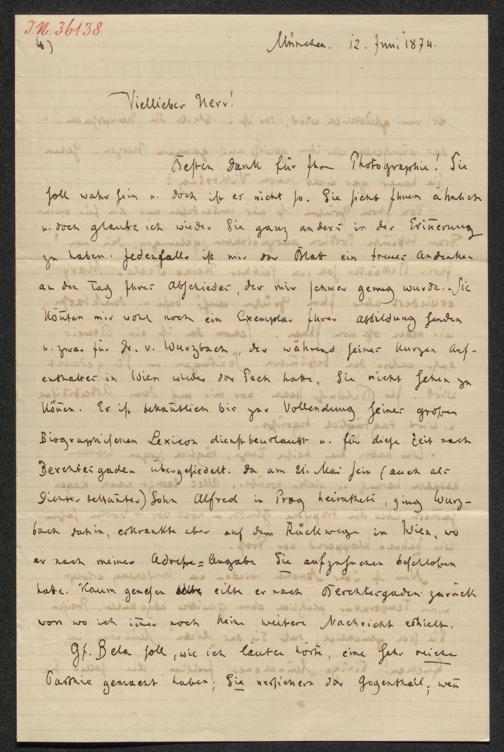 J.N. 36138
4)
München. 12. Juni 1874.
Viellieber Herr!
Besten Dank für Ihre Photographie! Sie
soll wahr sein u. doch ist es nicht so. Sie sieht Ihnen ähnlich
u. doch glaube ich wieder Sie ganz anders in der Erinnerung
zu haben. Jedenfalls ist mir das Blatt ein treues Andenken
an den Tag Ihres Abschiedes der mir schwer genug wurde. Sie
könnten mir wohl noch ein Exemplar Ihrer Abbildung senden
u. zwar für Dr. v. Wurzbach, der während seines kurzen Auf-
enthaltes in Wien wieder das Pech hatte, Sie nicht sehen zu
können. Er ist bekanntlich bis zur Vollendung seines großen
Biographischen Lexicon dienstbeurlaubt u. für diese Zeit nach
Berchtesgaden übergesiedelt. Da am 21. Mai sein (auch als
Dichter bekannter) Sohn Alfred in Prag heirathete, ging Wurz-
bach dahin, erkrankte aber auf dem Rückwege in Wien, wo
er nach meiner Adresse=Angabe Sie aufzusuchen beschlossen
hatte. Kaum genesen eilte er nach Berchtesgaden zurück
von wo ich immer noch keine weitere Nachricht erhielt.
Gf. Bela soll, wie ich läuten hörte, eine sehr reiche
Parthie gemacht haben; Sie versichern das Gegentheil; wenn